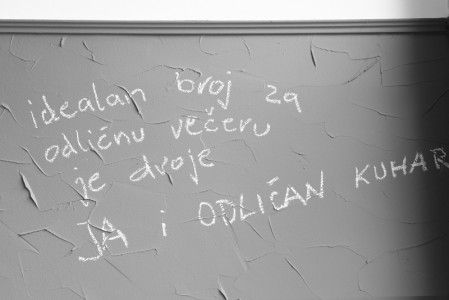 idealan broj za
odličnu večeru
je dvoje
JA i ODLIČAN KUHAR